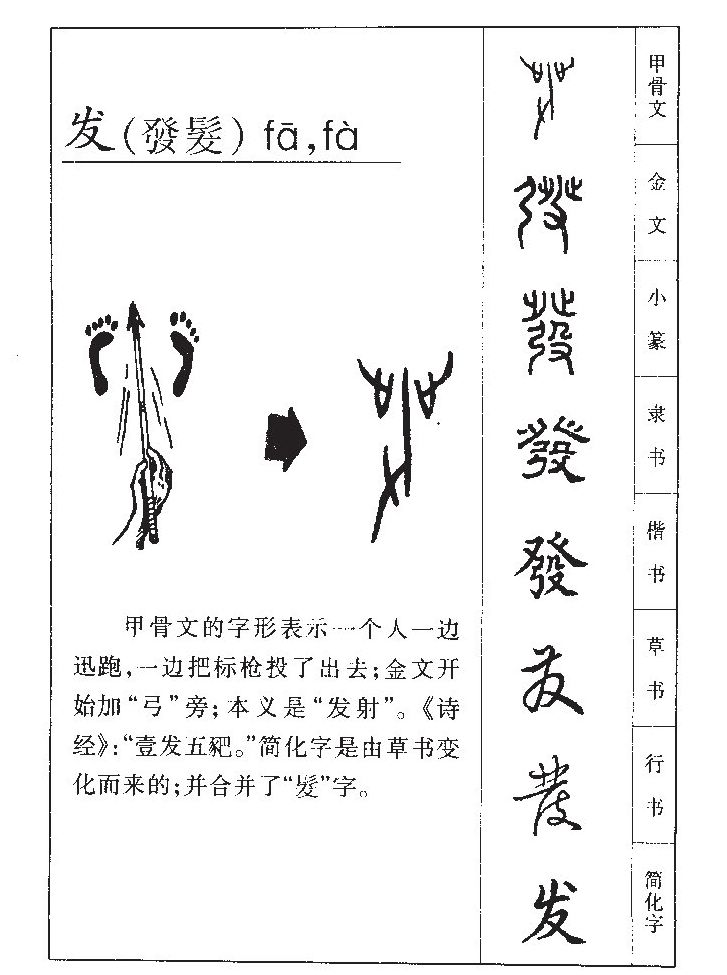 发(發髮) fā,fà
甲骨文的字形表示一个人一边
迅跑,一边把标枪投了出去;金文开
始加“弓”旁;本义是“发射”。《诗
经》:“壹发五豝。”简化字是由草书变
化而来的;并合并了“髮”字。
甲骨文
金文
小篆
發
隶书
發
楷书
发
草书
发
行书
发
简化字